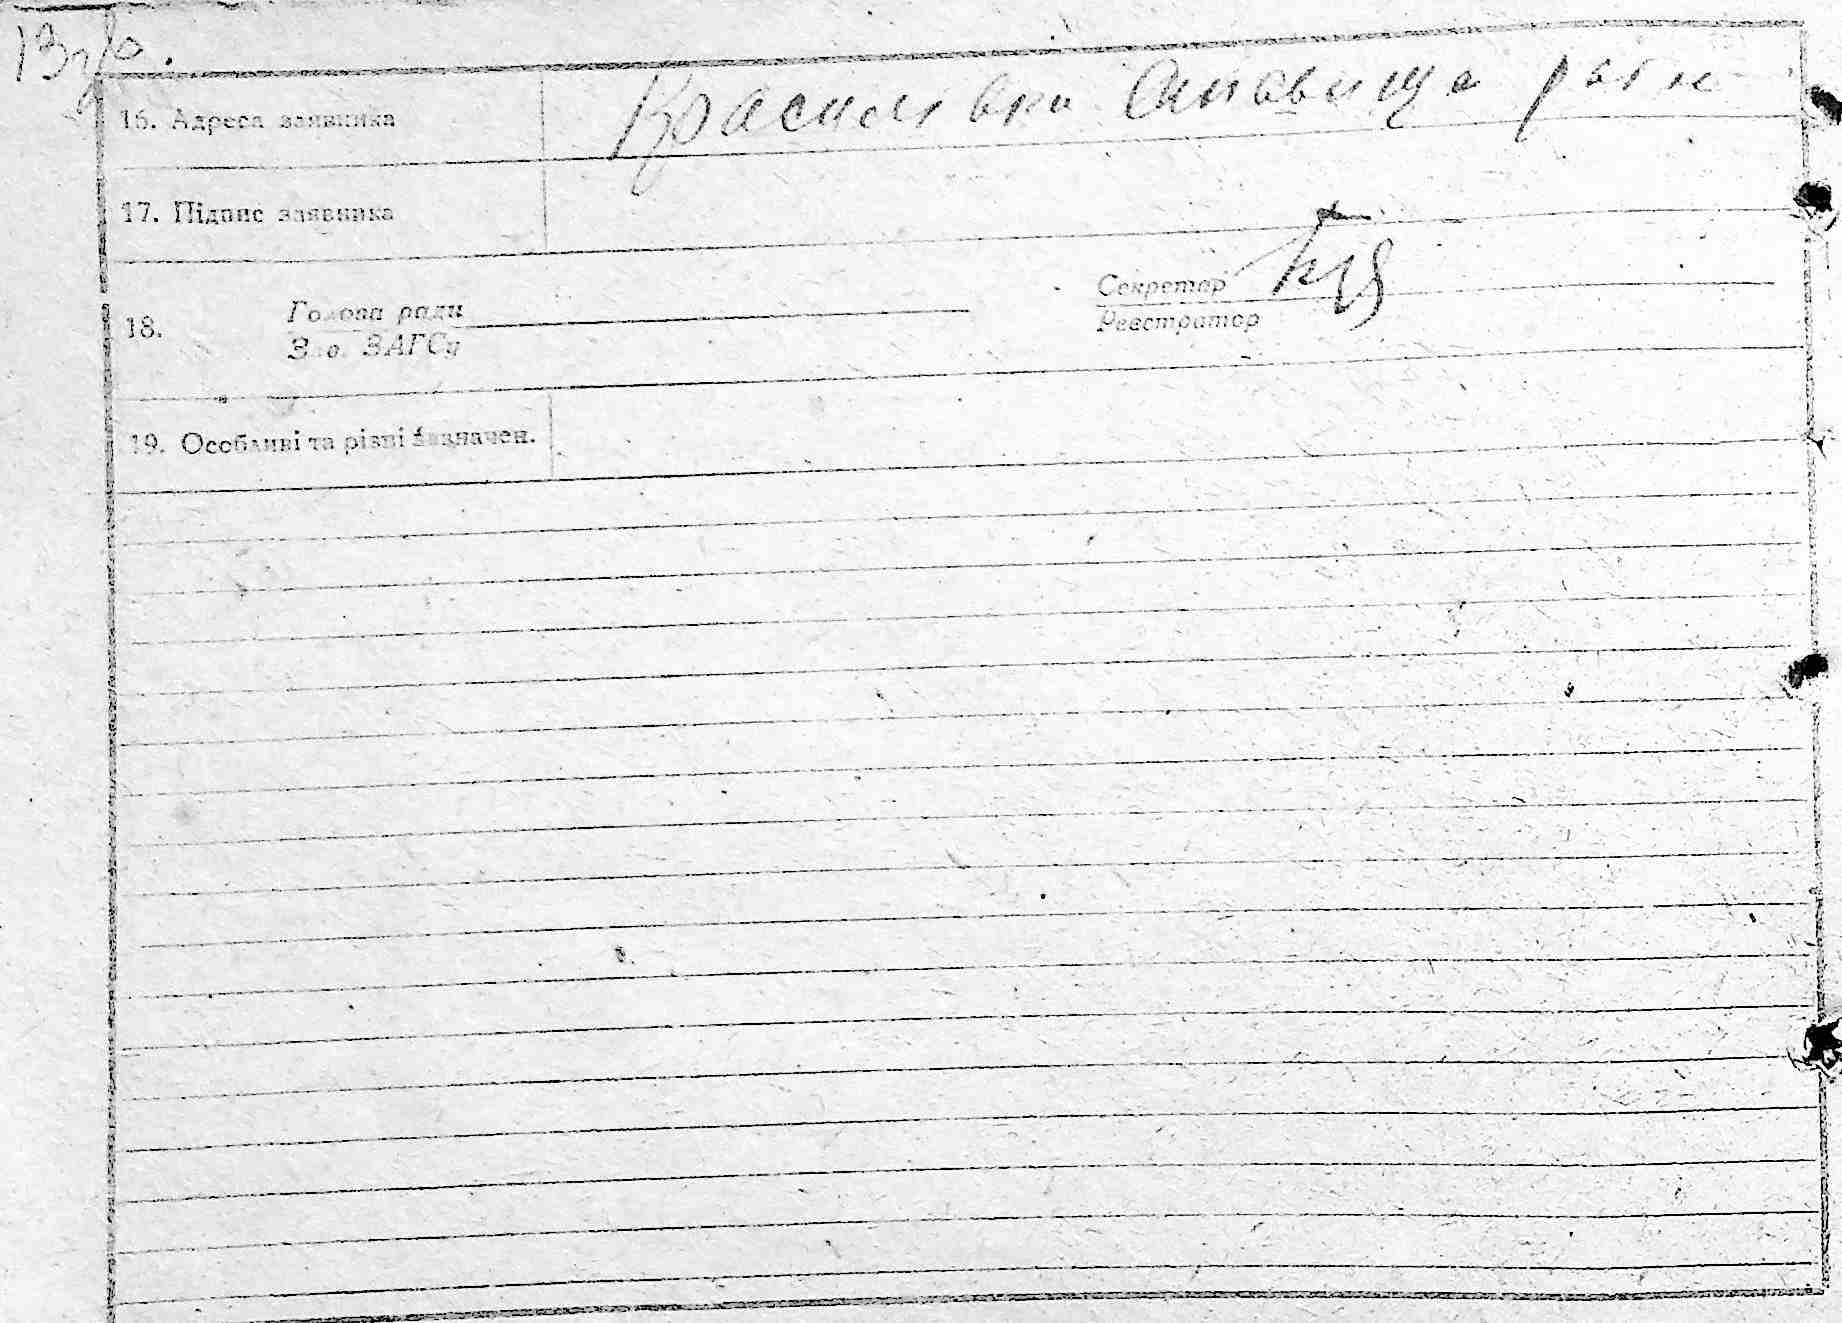 13
16. Адреса заявника Красилівка Ставища район
17. Підпис заявника
Секретар
18. Голова ради
Реєстратор
Зав. ЗАГСу
19. Особливі та різні зазначен.